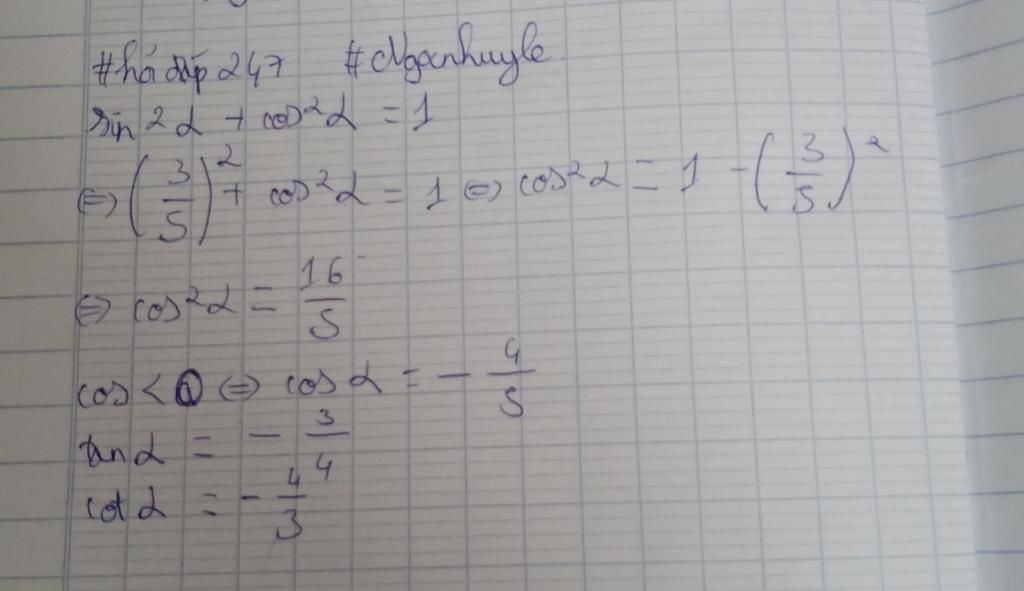 #hỏi đáp 247 #Nganhuyle
sin²α + cos²α = 1
⇔ (3/5)² + cos²α = 1 ⇔ cos²α = 1 - (3/5)²
⇔ cos²α = 16/5
cos < 0 ⇔ cos α = - 4/5
tan α = - 3/4
cot α = - 4/3